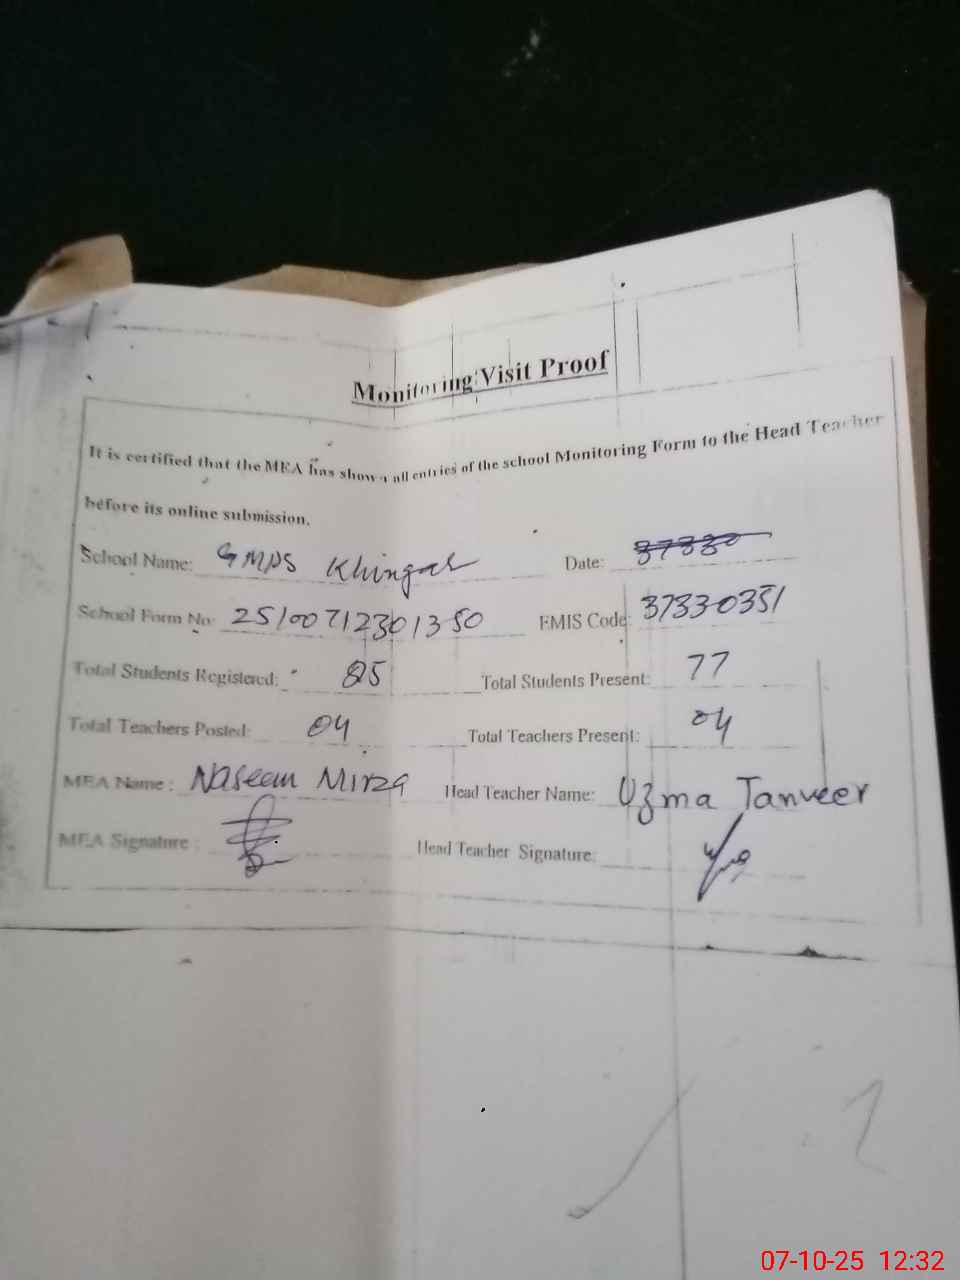 Monitoring Visit Proof
It is certified that the MEA has shown all entries of the school Monitoring Form to the Head Teacher
before its online submission.
School Name: GMPS Khingar Date: 37330
School Form No: 25100712301350 EMIS Code: 37330351
Total Students Registered: 85 Total Students Present: 77
Total Teachers Posted: 04 Total Teachers Present: 04
MEA Name: Naseem Mirza Head Teacher Name: Uzma Tanveer
MEA Signature: Head Teacher Signature:
07-10-25 12:32